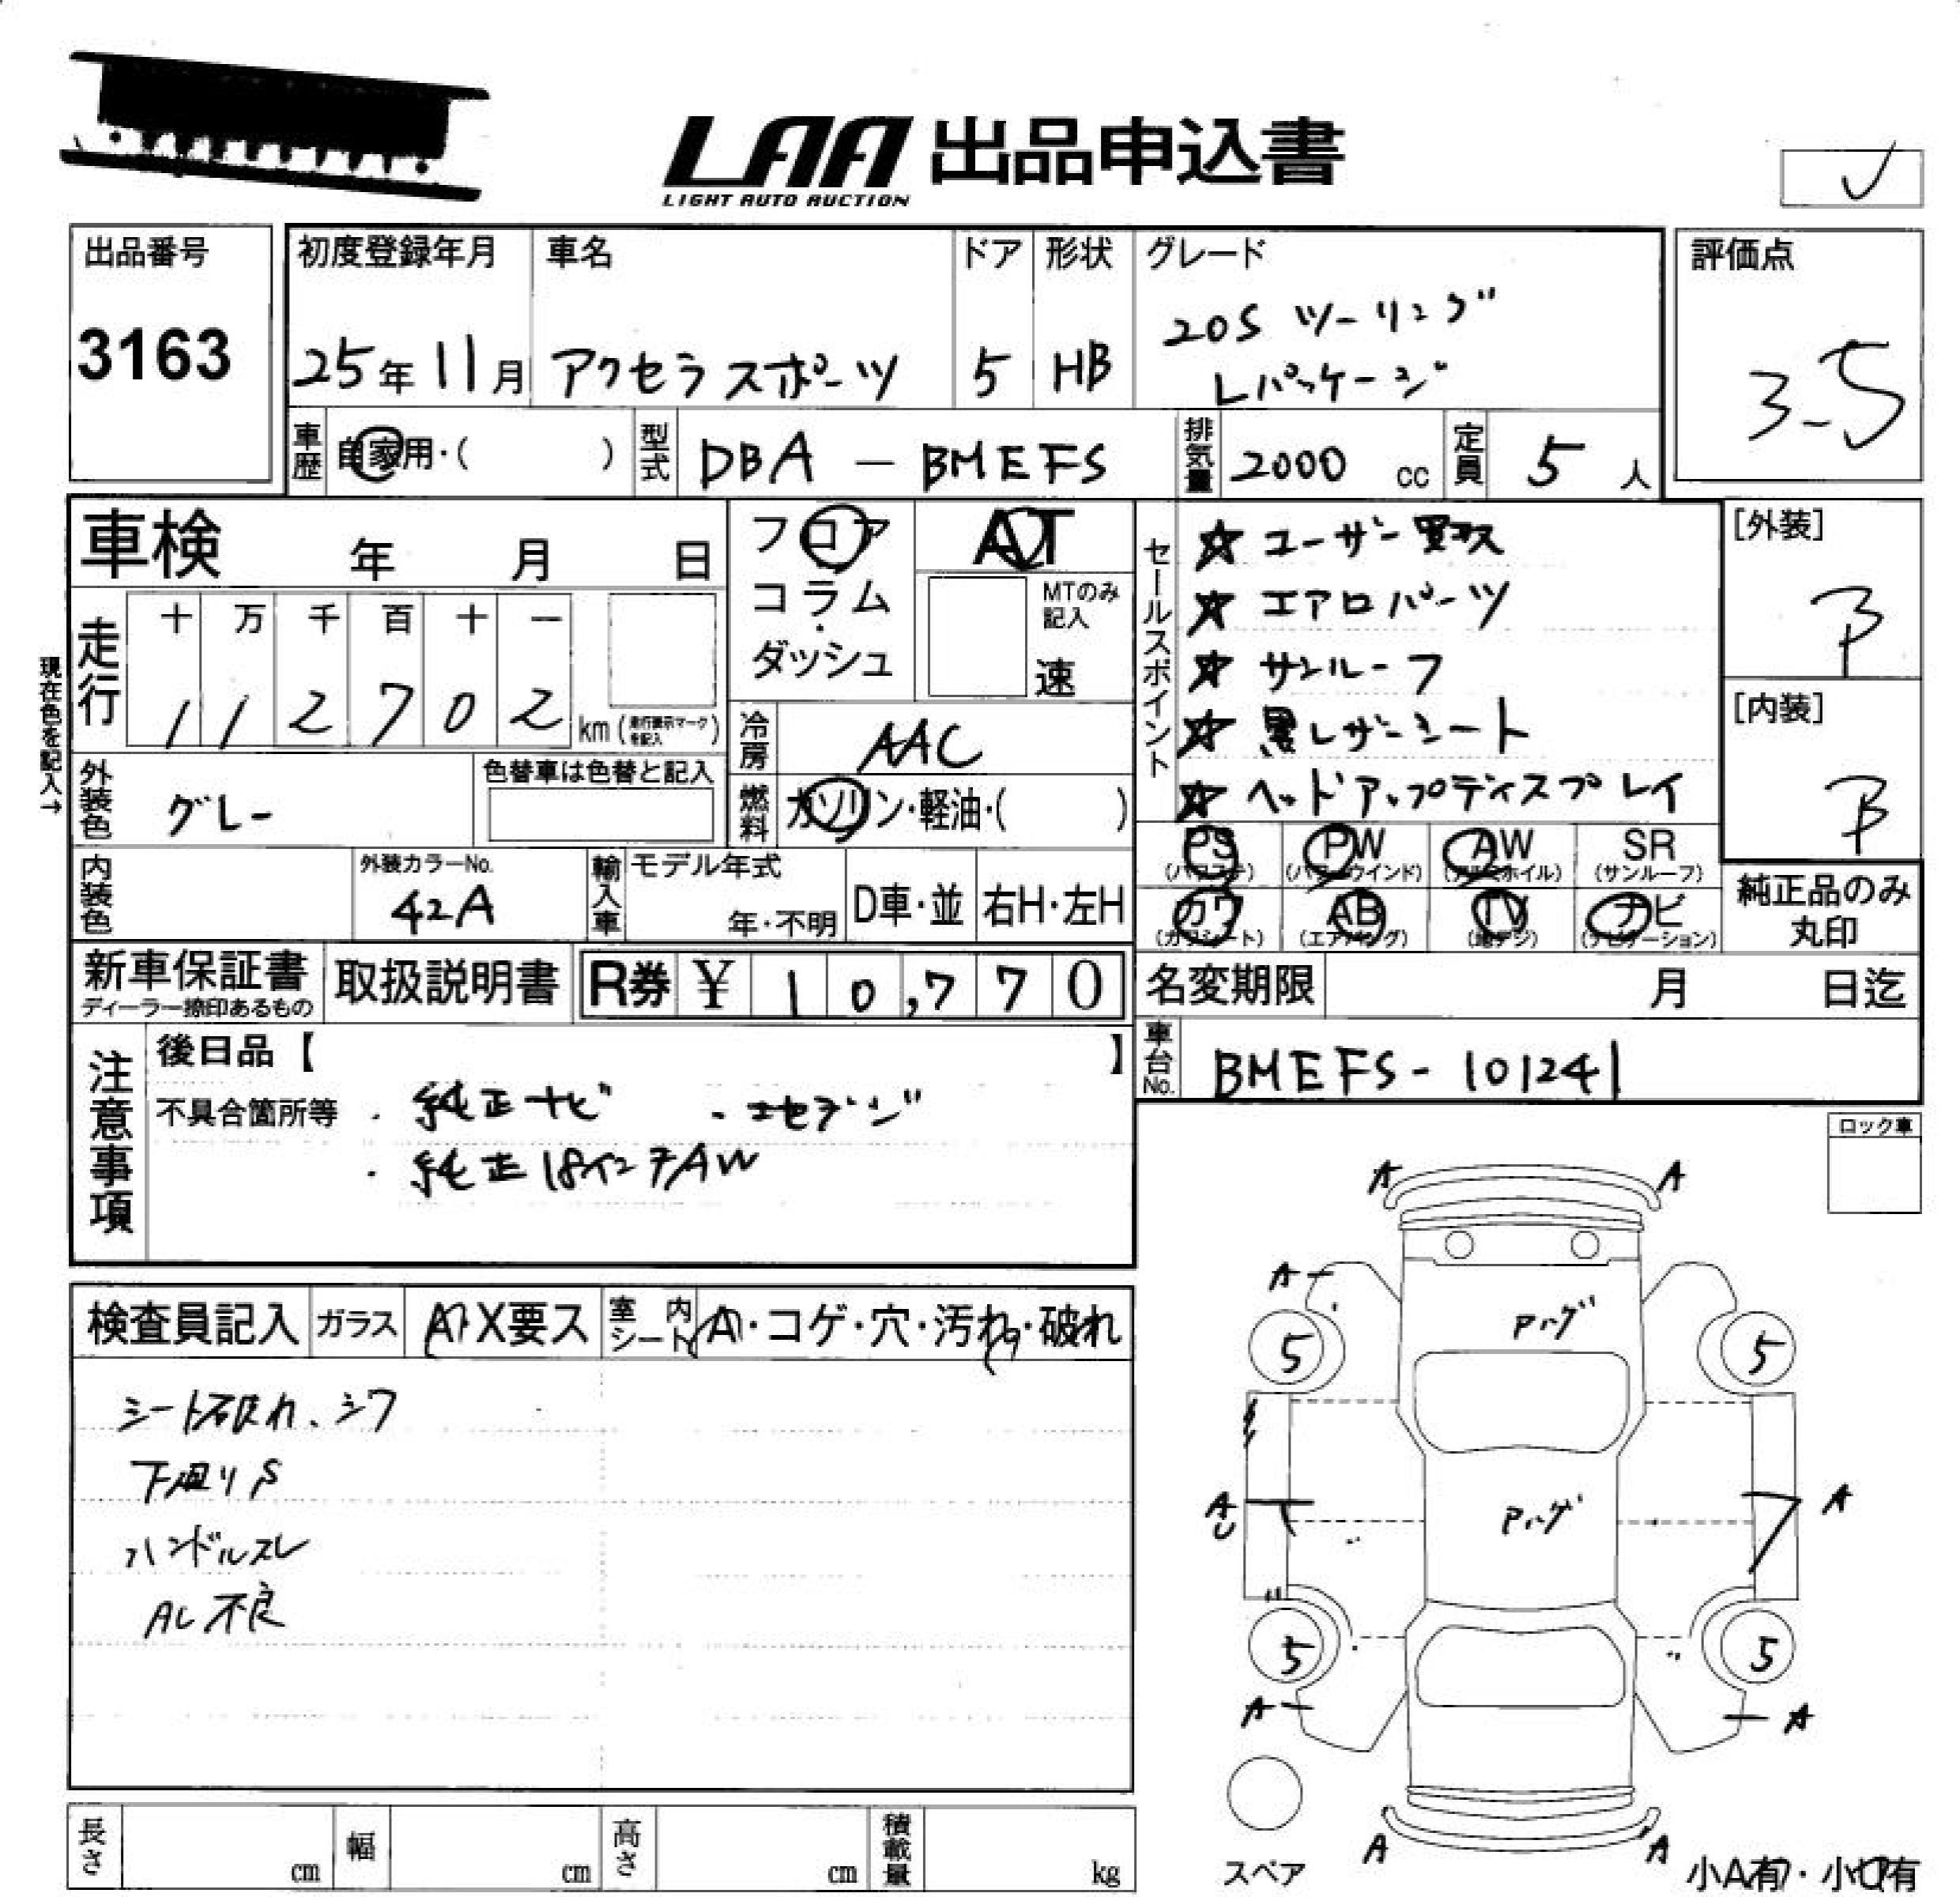 LAA 出品申込書
LIGHT AUTO AUCTION
出品番号
3163
初度登録年月 車名 ドア 形状 グレード
25年 11月 アクセラスポーツ 5 HB 20S ツーリング
Lパッケージ
評価点
3.5
車歴 自家用・( ) 型式 DBA - BMEFS 排気量 2000 cc 定員 5 人
車検 年 月 日
フロア
コラム
・
ダッシュ
AT
MTのみ
記入
速
セールスポイント
☆ ユーザー買取
☆ エアロパーツ
☆ サンルーフ
☆ 黒レザーシート
☆ ヘッドアップディスプレイ
[外装]
B
[内装]
B
現在色を記入→
走行 十 万 千 百 十 一
1 1 2 7 0 2 km (走行表示マークを記入)
冷房 AAC
外装色 グレー 色替車は色替と記入
燃料 ガソリン・軽油・( )
PS PW AW SR
(パワステ) (パワーウインド) (アルミホイル) (サンルーフ)
カワ AB TV ナビ
(カワシート) (エアバッグ) (地デジ) (ナビゲーション)
純正品のみ
丸印
内装色 外装カラーNo. 42A 輸入車 モデル年式 年・不明 D車・並 右H・左H
新車保証書 取扱説明書 R券 ¥ 10,770
ディーラー捺印あるもの
名変期限 月 日迄
車台No. BMEFS-101241
注意事項
後日品【 】
不具合箇所等 ・純正ナビ ・地デジ
・純正18インチAW
ロック車
検査員記入 ガラス A・X要ス 室内シート A・コゲ・穴・汚れ・破れ
シート破れ、シワ
下廻りS
ハンドルスレ
AC不良
A A
A
Pハゲ
5 5
A
U
Pハゲ
A
5 5
A A
A A
スペア
小A有・小U有
長さ cm 幅 cm 高さ cm 積載量 kg